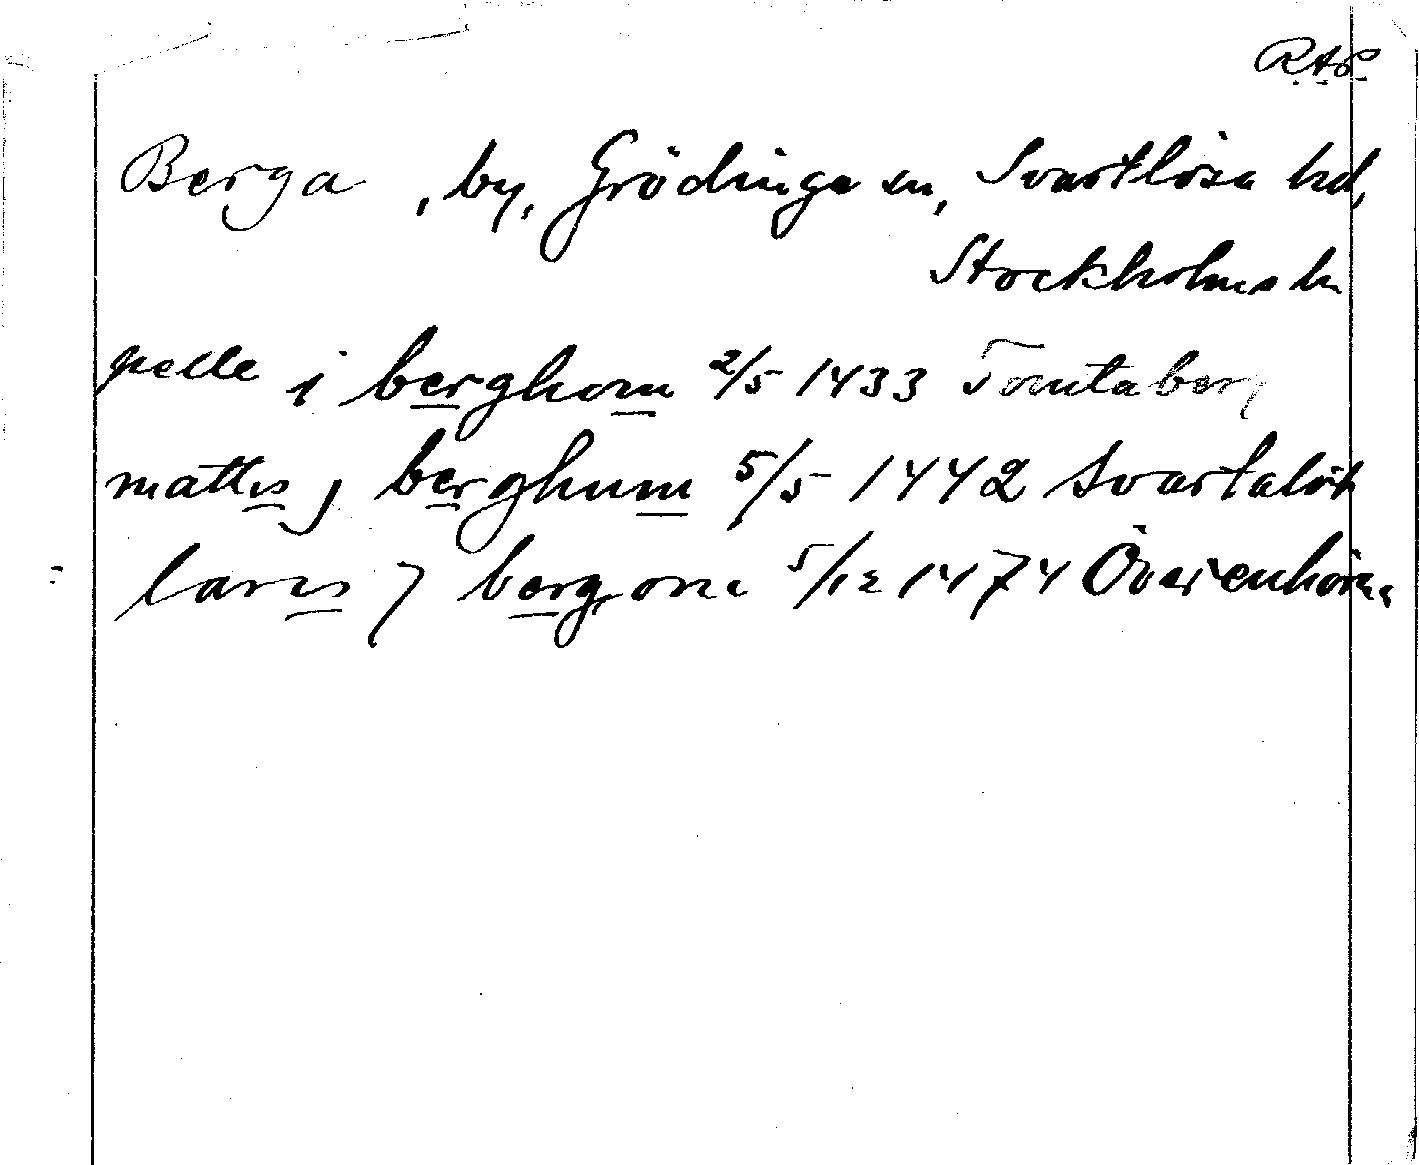 RAP.
Berga, by, Grödinge sn, Svartlösa hd,
Stockholms ln
pelle i berghom 2/5 1433 Tomtaberg
mattis j berghum 5/5 1442 Svartalöt
lares j bergom 5/12 1474 Överenhörna